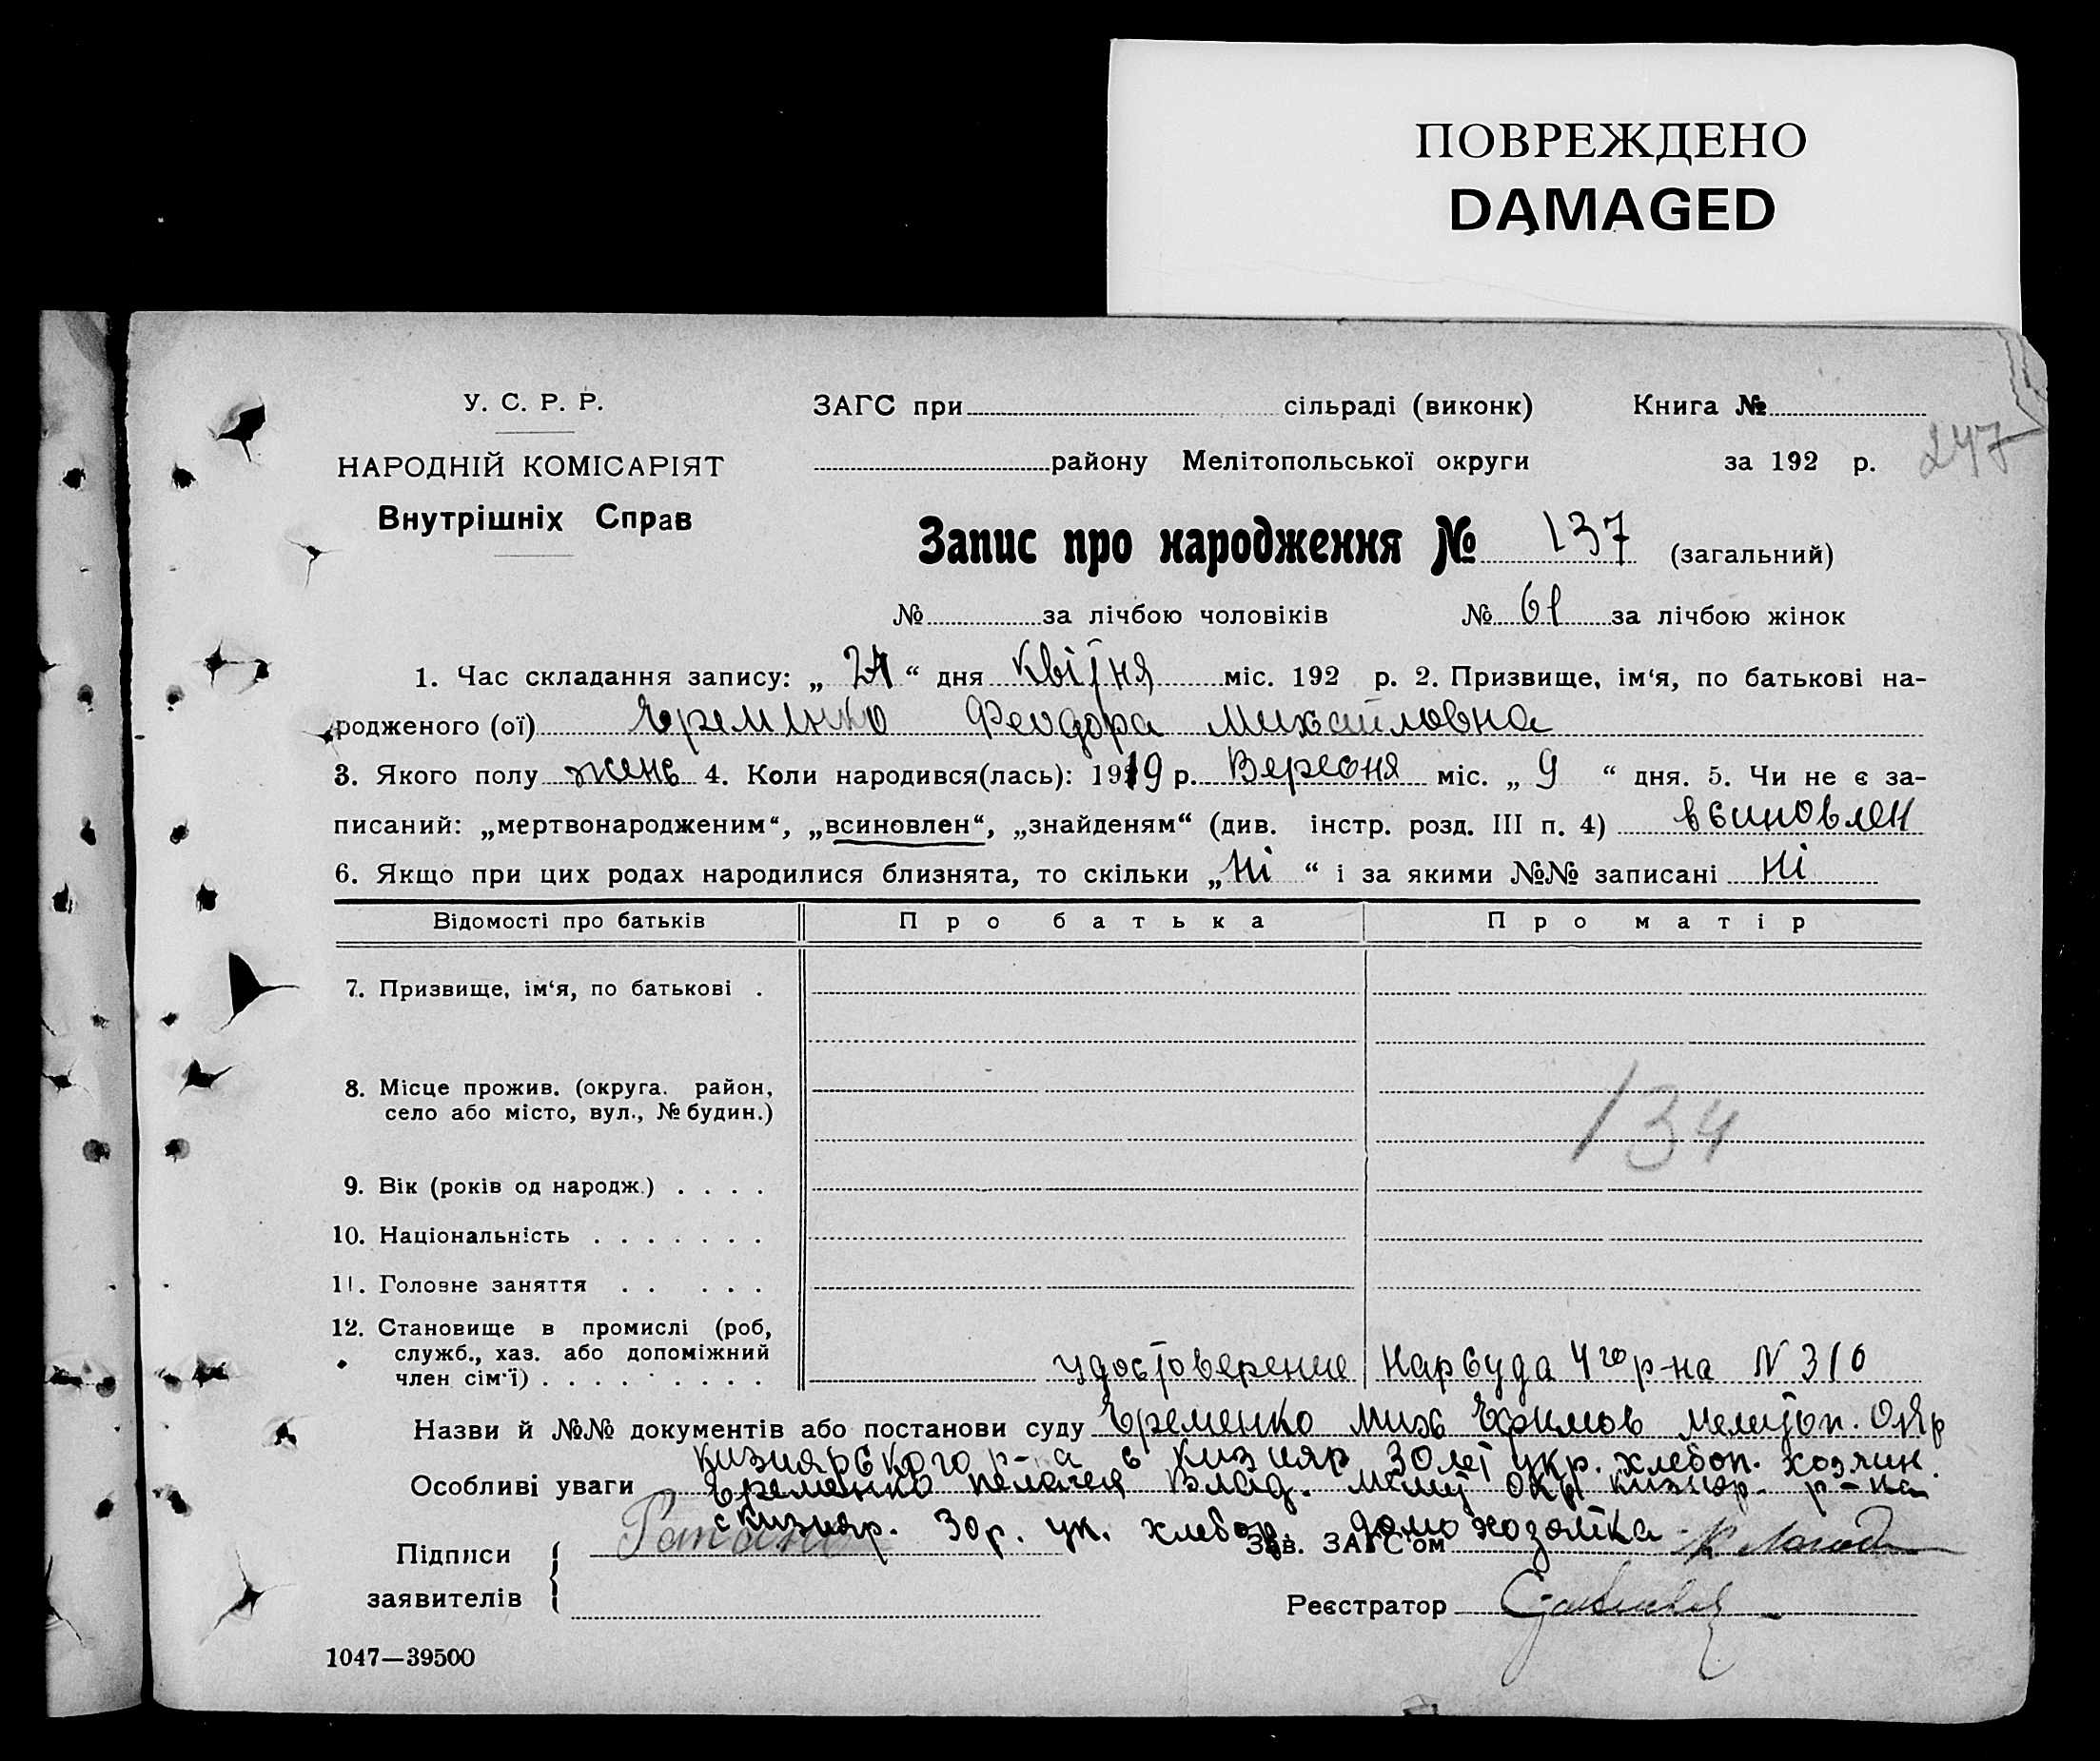 ПОВРЕЖДЕНО
DAMAGED
У. С. Р. Р.
НАРОДНІЙ КОМІСАРІЯТ
Внутрішніх Справ
ЗАГС при сільраді (виконк) Книга №
247
району Мелітопольської округи за 192 р.
Запис про народження № 137 (загальний)
№ за лічбою чоловіків № 61 за лічбою жінок
1. Час складання запису: „ 24 “ дня Квітня міс. 192 р. 2. Призвище, ім‘я, по батькові на-
родженого (ої) Еременко Феодора Михайловна
3. Якого полу жен 4. Коли народився(лась): 1919 р. Вересня міс. „ 9 “ дня. 5. Чи не є за-
писаний: „мертвонародженим“, „всиновлен“, „знайденям“ (див. інстр. розд. III п. 4) всиновлен
6. Якщо при цих родах народилися близнята, то скільки „ Ні “ і за якими №№ записані Ні
Відомості про батьків Про батька Про матір
7. Призвище, ім‘я, по батькові .
8. Місце прожив. (округа. район,
село або місто, вул., № будин.)
134
9. Вік (років од народж.) . . . .
10. Національність . . . . . . .
11. Головне заняття . . . . .
12. Становище в промислі (роб,
служб., хаз. або допоміжний
член сім‘ї) . . . . . . . . . удостоверение Нарсуда 4го р-на N 316
Назви й №№ документів або постанови суду Еременко Мих Ефимов Мелитоп. Окр
Кизиярского р-а с Кизияр 30 лет укр. хлебоп. хозяин.
Особливі уваги Еременко Пелагея Влад. Мелит Окр Кизияр. р-на
с Кизияр. 30 р. ук. хлебор. домохозяйка
Підписи
заявителів
Зав. ЗАГС‘ом
Реєстратор
1047—39500